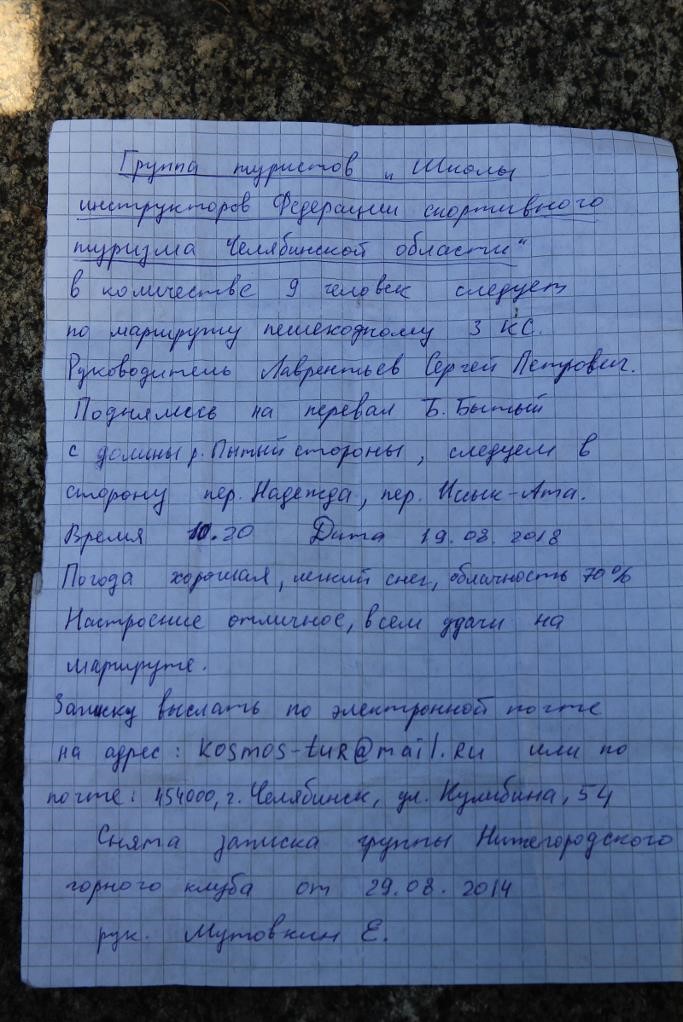 Группа туристов и Школы
инструкторов Федерации спортивного
туризма "Челябинской области"
в количестве 9 человек следует
по маршруту пешеходному 3 КС.
Руководитель Лаврентьев Сергей Петрович.
Поднялись на перевал Б. Бытый
с долины р. Пытый стороны, следуем в
сторону пер. Надежда, пер. Исык-Ата.
Время 10.20 Дата 19.08.2018
Погода хорошая, легкий снег, облачность 70%
Настроение отличное, всем удачи на
маршруте.
Записку выслать по электронной почте
на адрес: kosmos-tur@mail.ru или по
почте: 454000, г. Челябинск, ул. Кулибина, 54
Снята записка группы Нижегородского
горного клуба от 29.08.2014
рук. Мутовкин Е.